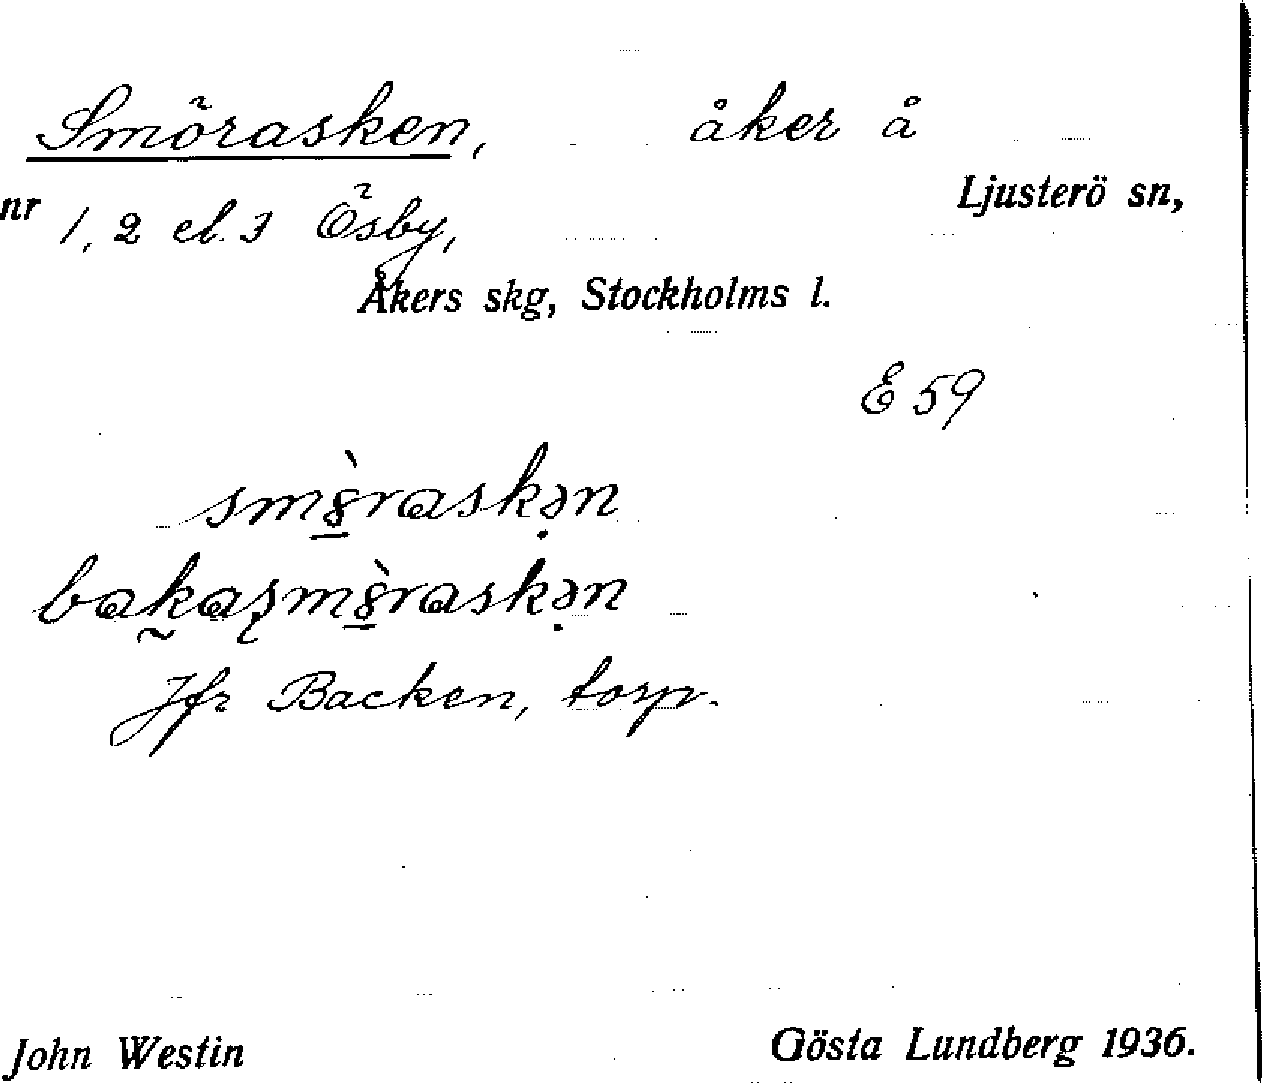 Smörasken, åker å
nr 1, 2 el. 3 Ösby, Ljusterö sn,
Åkers skg, Stockholms l.
E 59
Jfr Backen, torp.
John Westin Gösta Lundberg 1936.